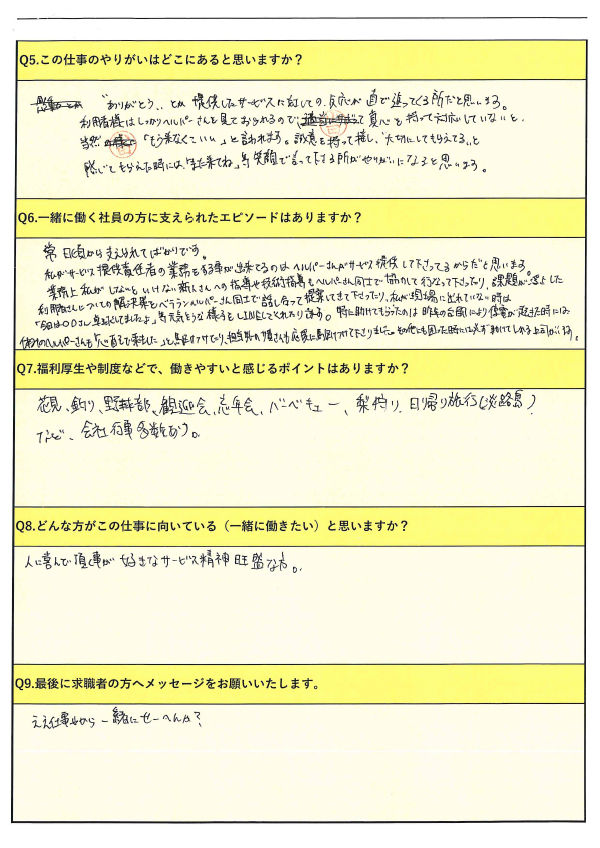 Q5.この仕事のやりがいはどこにあると思いますか？
"ありがとう、、とか 提供したサービスに対しての反応が直で返ってくる所だと思います。
利用者様はしっかりヘルパーさんを見ておられるので、真心を持って対応していないと、
当然「もう来なくていい」と言われます。誠意を持って接し、大切にしてもらえてると
感じてもらえた時には、「また来てね」等 笑顔で言って下さる所がやりがいになると思います。
Q6.一緒に働く社員の方に支えられたエピソードはありますか？
常日頃から支えられてばかりです。
私がサービス提供責任者の業務をする事が出来てるのはヘルパーさんがサービス提供して下さってるからだと思います。
業務上私がしないといけない新人さんへの指導や技術指導もヘルパーさん同士で協力して行なって下さったり、課題が
利用者さんについての解決策をベテランヘルパーさん同士で話し合って提案してきて下さったり、私が現場に出れていない時は
「今日は〇〇さん してましたよ」等 元気そうな様子をLINEしてくれたりします。時に助けてもらったのは昨年の台風により停電が起きた時には
他のヘルパーさんも
Q7.福利厚生や制度などで、働きやすいと感じるポイントはありますか？
花見、釣り、野球部、歓迎会、忘年会、バーベキュー、梨狩り、日帰り旅行(淡路島)
など、会社行事多数あり。
Q8.どんな方がこの仕事に向いている（一緒に働きたい）と思いますか？
人に喜んで頂く事が好きなサービス精神旺盛な方。
Q9.最後に求職者の方へメッセージをお願いいたします。
ええ仕事やから一緒にせーへんか？